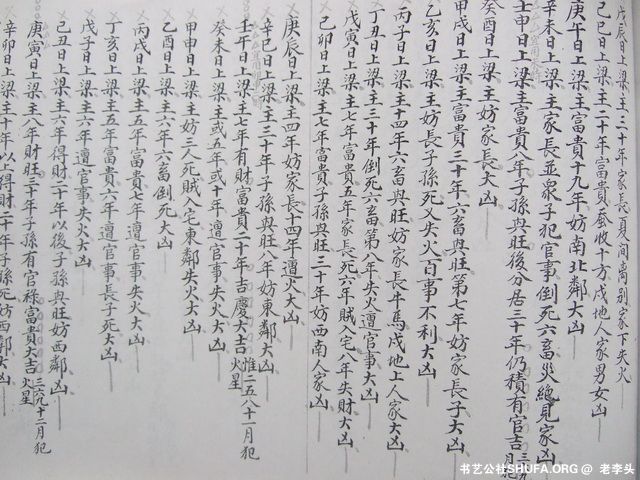 戊辰日上梁主二十年家長
己巳日上梁主二十年富貴蚕收十方戌地人家男女凶
庚午日上梁主富貴十九年妨南北鄰大凶
辛未日上梁主家長並眾子犯官事倒死六畜災總見家凶
壬申日上梁主富貴八年子孫興旺後分居三十年仍積有官吉
癸酉日上梁主妨家長大凶
甲戌日上梁主富貴三十年六畜興旺第七年妨家長子大凶
乙亥日上梁主妨長子孫死又失火百事不利大凶
丙子日上梁主十四年六畜興旺妨家長牛馬戌地上人家大凶
丁丑日上梁主三十年倒死六畜第八年失火遭官事大凶
戊寅日上梁主七年富貴五年家長死六年賊入宅八年失財大凶
己卯日上梁主七年富貴子孫興旺三十年妨西南人家凶
庚辰日上梁主四年妨家長十四年遭火大凶
辛巳日上梁主三十年子孫興旺八年妨東鄰大凶
壬午日上梁主七年有財富貴二十年吉慶大吉 惟二五八十一月犯火星
癸未日上梁主或五年或十年遭官事大凶
甲申日上梁主妨三人死賊入宅東鄰失火大凶
乙酉日上梁主六年六畜倒死大凶
丙戌日上梁主五年富貴七年遭官事失火大凶
丁亥日上梁主五年富貴六年遭官事長子死大凶
戊子日上梁主六年遭官事失火大凶
己丑日上梁主六年得財二十年以後子孫興旺妨西鄰凶
庚寅日上梁主八年財旺二十年子孫有官祿富貴大吉 三六九十二月犯火星
辛卯日上梁主十年以上得財二十年子孫死妨西鄰大凶
书艺公社SHUFA.ORG @ 老李头